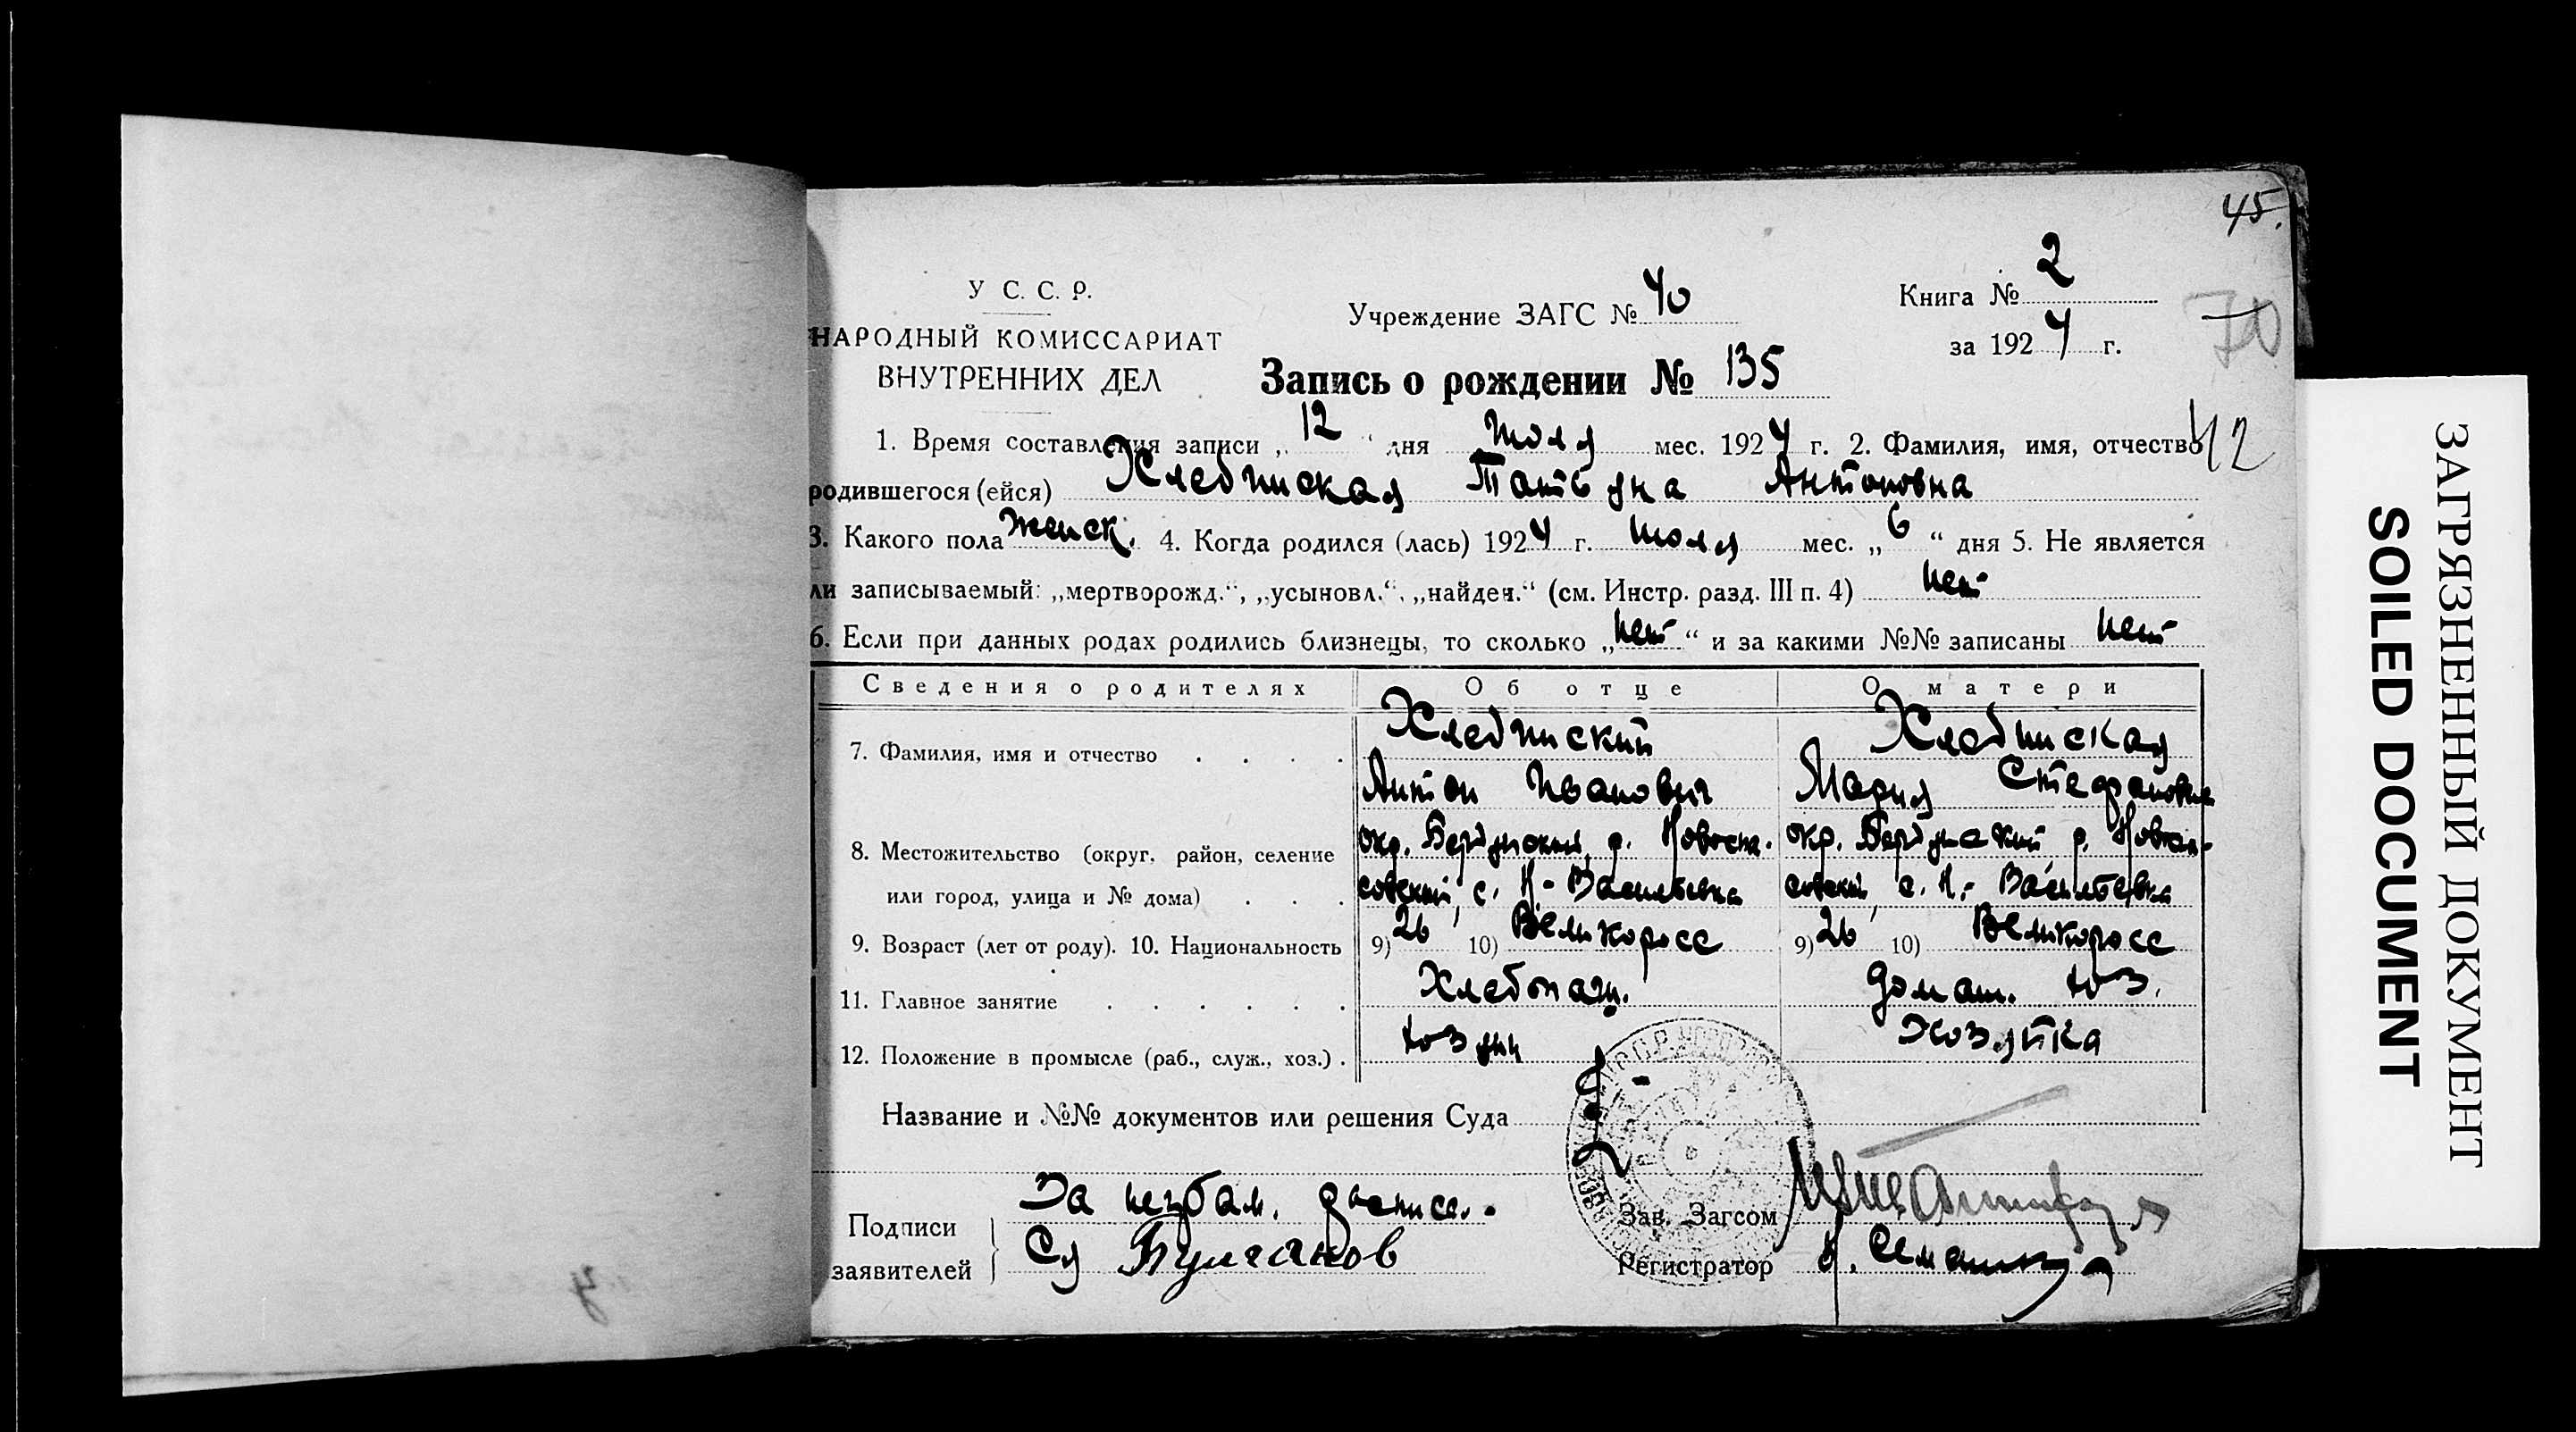 45.
У С. С. Р.
НАРОДНЫЙ КОМИССАРИАТ
ВНУТРЕННИХ ДЕЛ
Учреждение ЗАГС № 40
Книга № 2
за 1924 г.
70
Запись о рождении № 135
1. Время составления записи „ 12 “ дня Июля мес. 1924 г. 2. Фамилия, имя, отчество
42
родившегося (ейся) Татьяна Антоновна
3. Какого пола женск. 4. Когда родился (лась) 1924 г. Июля мес. „ 6 “ дня 5. Не является
ли записываемый: „мертворожд.“, „усыновл.“, „найден.“ (см. Инстр. разд. III п. 4) нет
6. Если при данных родах родились близнецы, то сколько „ нет “ и за какими №№ записаны нет
Сведения о родителях Об отце О матери
7. Фамилия, имя и отчество . . . .
Антон Иванович Мария Стефановна
8. Местожительство (округ, район, селение окр. Бердянский, р. Новоспа- окр. Бердянский, р. Новоспа-
или город, улица и № дома) . . . совский, с. Н.-Васильевка совский, с. Н.-Васильевка
9. Возраст (лет от роду). 10. Национальность 9) 26 10) Великоросс 9) 26 10) Великоросс
11. Главное занятие . . . . . . Хлебопаш. домаш. хоз.
12. Положение в промысле (раб., служ., хоз.) . хозяин хозяйка
Название и №№ документов или решения Суда
Подписи
заявителей
За неграм. расписал.
Булганов
Зав. Загсом
Регистратор
ЗАГРЯЗНЕННЫЙ ДОКУМЕНТ
SOILED DOCUMENT